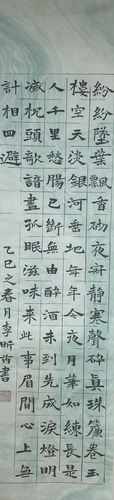 紛紛墜葉飄香砌夜寂靜寒聲碎真珠簾卷玉
樓空天淡銀河垂地年年今夜月華如練長是
人千里愁腸已斷無由醉酒未到先成淚燈明
滅枕頭欹諳盡孤眠滋味來此事眉間心上無
計相迴避
乙巳之春月李昕芮書